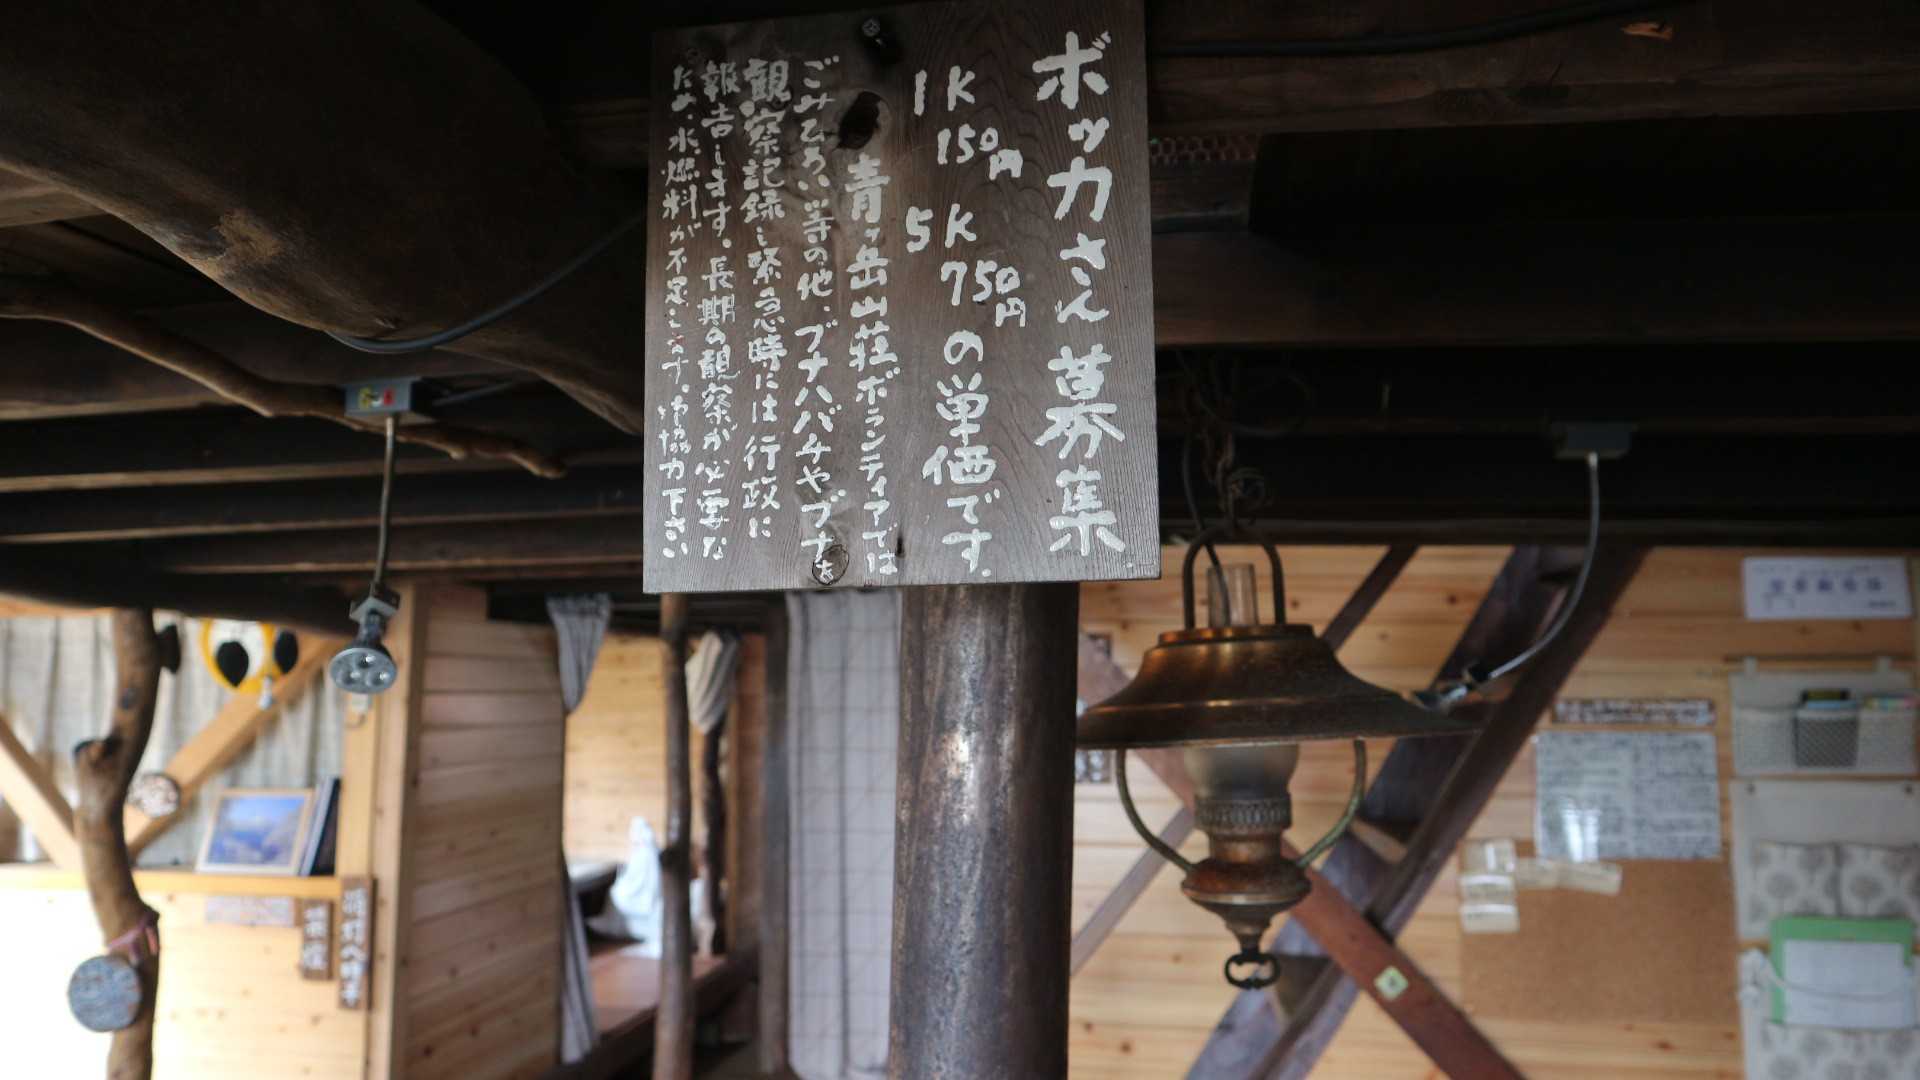 ボッカさん募集
1K
150円
5K
750円の単価です.
青ヶ岳山荘ボランティアでは
ごみひろい等の他、ブナハバチやブナを
観察記録し緊急時には行政に
報告します。長期の観察が必要な
ため、水、燃料が不足します。御協力下さい